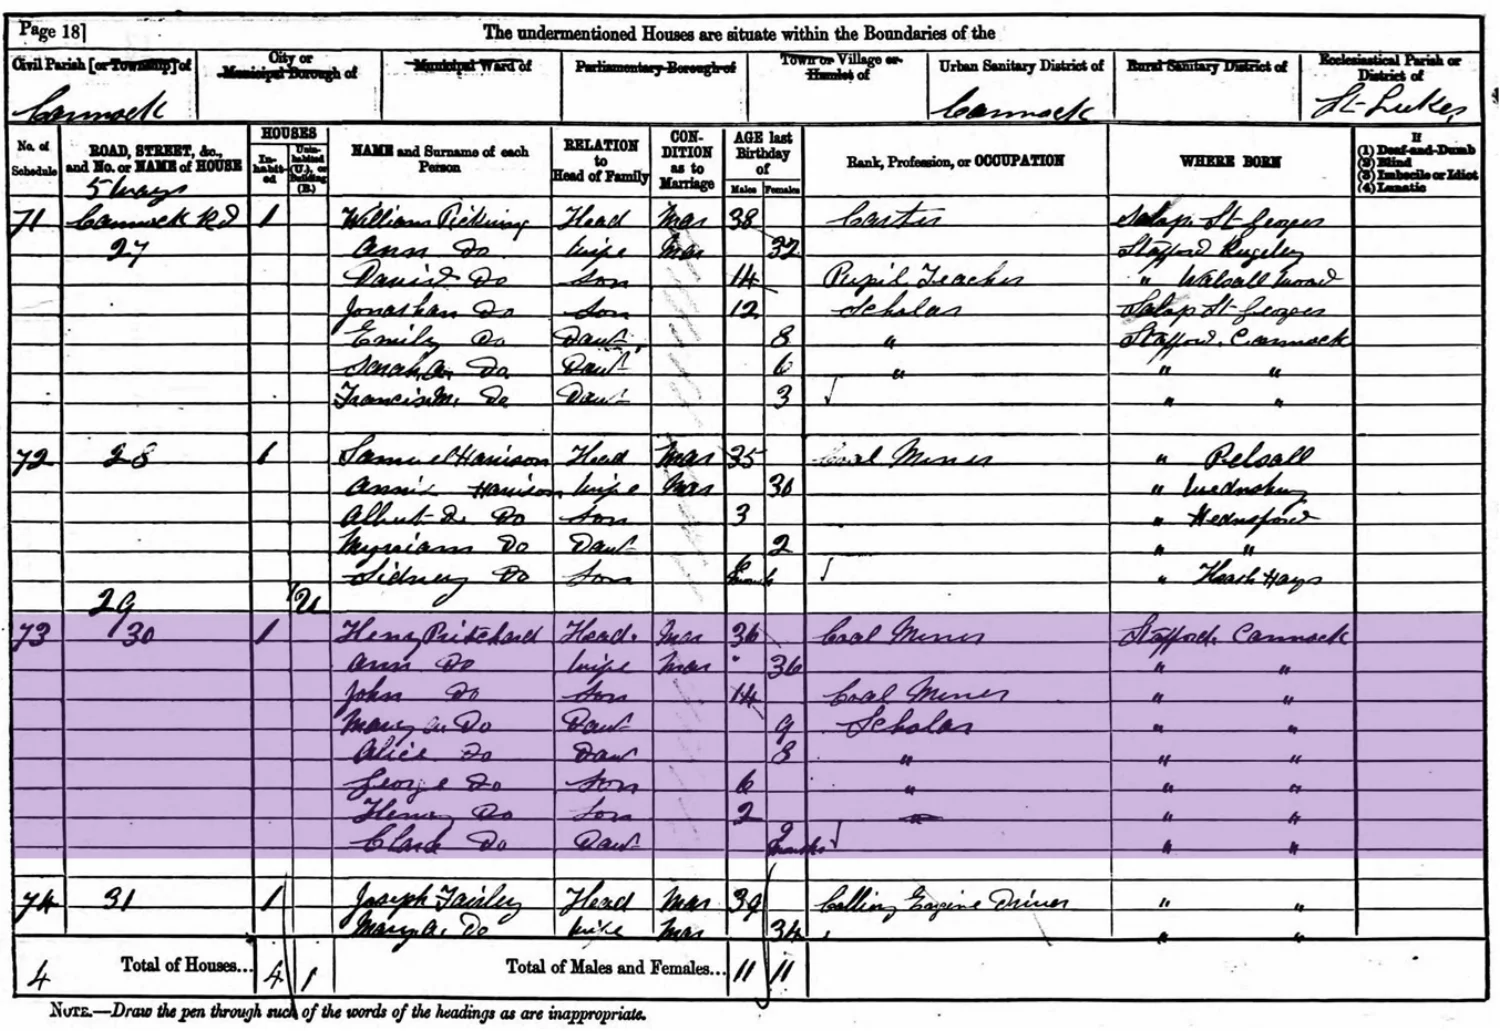 Page 18]
The undermentioned Houses are situate within the Boundaries of the
Civil Parish [or Township] of
City or Municipal Borough of
Municipal Ward of
Parliamentary Borough of
Town or Village or Hamlet of
Urban Sanitary District of
Rural Sanitary District of
Ecclesiastical Parish or District of
Cannock Cannock St Lukes
No. of Schedule
ROAD, STREET, &c., and No. or NAME of HOUSE
HOUSES
In-habit-ed
Unin-habited (U.), or Building (B.)
NAME and Surname of each Person
RELATION to Head of Family
CON-DITION as to Marriage
AGE last Birthday of
Males Females
Rank, Profession, or OCCUPATION
WHERE BORN
If
(1) Deaf-and-Dumb
(2) Blind
(3) Imbecile or Idiot
(4) Lunatic
5 Ways
71 Cannock Rd 1 William Pickring Head Mar 38 Carter Salop St Georges
27 Ann Do Wife Mar 32 Stafford Rugeley
David Do Son 14 Pupil Teacher " Walsall Wood
Jonathan Do Son 12 Scholar Salop St Georges
Emily Do Daur 8 " Stafford. Cannock
Sarah A. Do Daur 6 " " "
Francis M. Do Daur 3 " "
72 28 1 Samuel Harrison Head Mar 35 Coal Miner " Pelsall
Annie Harrison Wife Mar 30 " Wednsbury
Albert Do Son 3 " Hednsford
Do Daur 2 " "
Sidney Do Son 6 months " Heath Hays
29 1 U
73 30 1 Henry Pritchard Head. Mar 36 Coal Miner Stafford. Cannock
Ann Do Wife Mar " 36 " "
John Do Son 14 Coal Miner " "
Mary A. Do Daur 9 Scholar " "
Alice Do Daur 8 " " "
George Do Son 6 " " "
Henry Do Son 2 " " "
Clara Do Daur 9 months " "
74 31 1 Joseph Fairley Head Mar 39 Colliery Engine Driver " "
Mary A. Do Wife Mar 34 " "
4 Total of Houses... 4 1 Total of Males and Females... 11 11
NOTE.—Draw the pen through such of the words of the headings as are inappropriate.